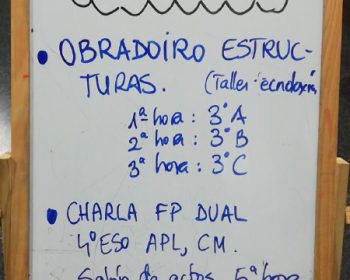 • OBRADOIRO ESTRUC-
TURAS. (Taller tecnoloxía)
1ª hora : 3º A
2ª hora : 3º B
3ª hora : 3º C
• CHARLA FP DUAL
4º ESO APL, CM.
Salón de actos 5ª hora